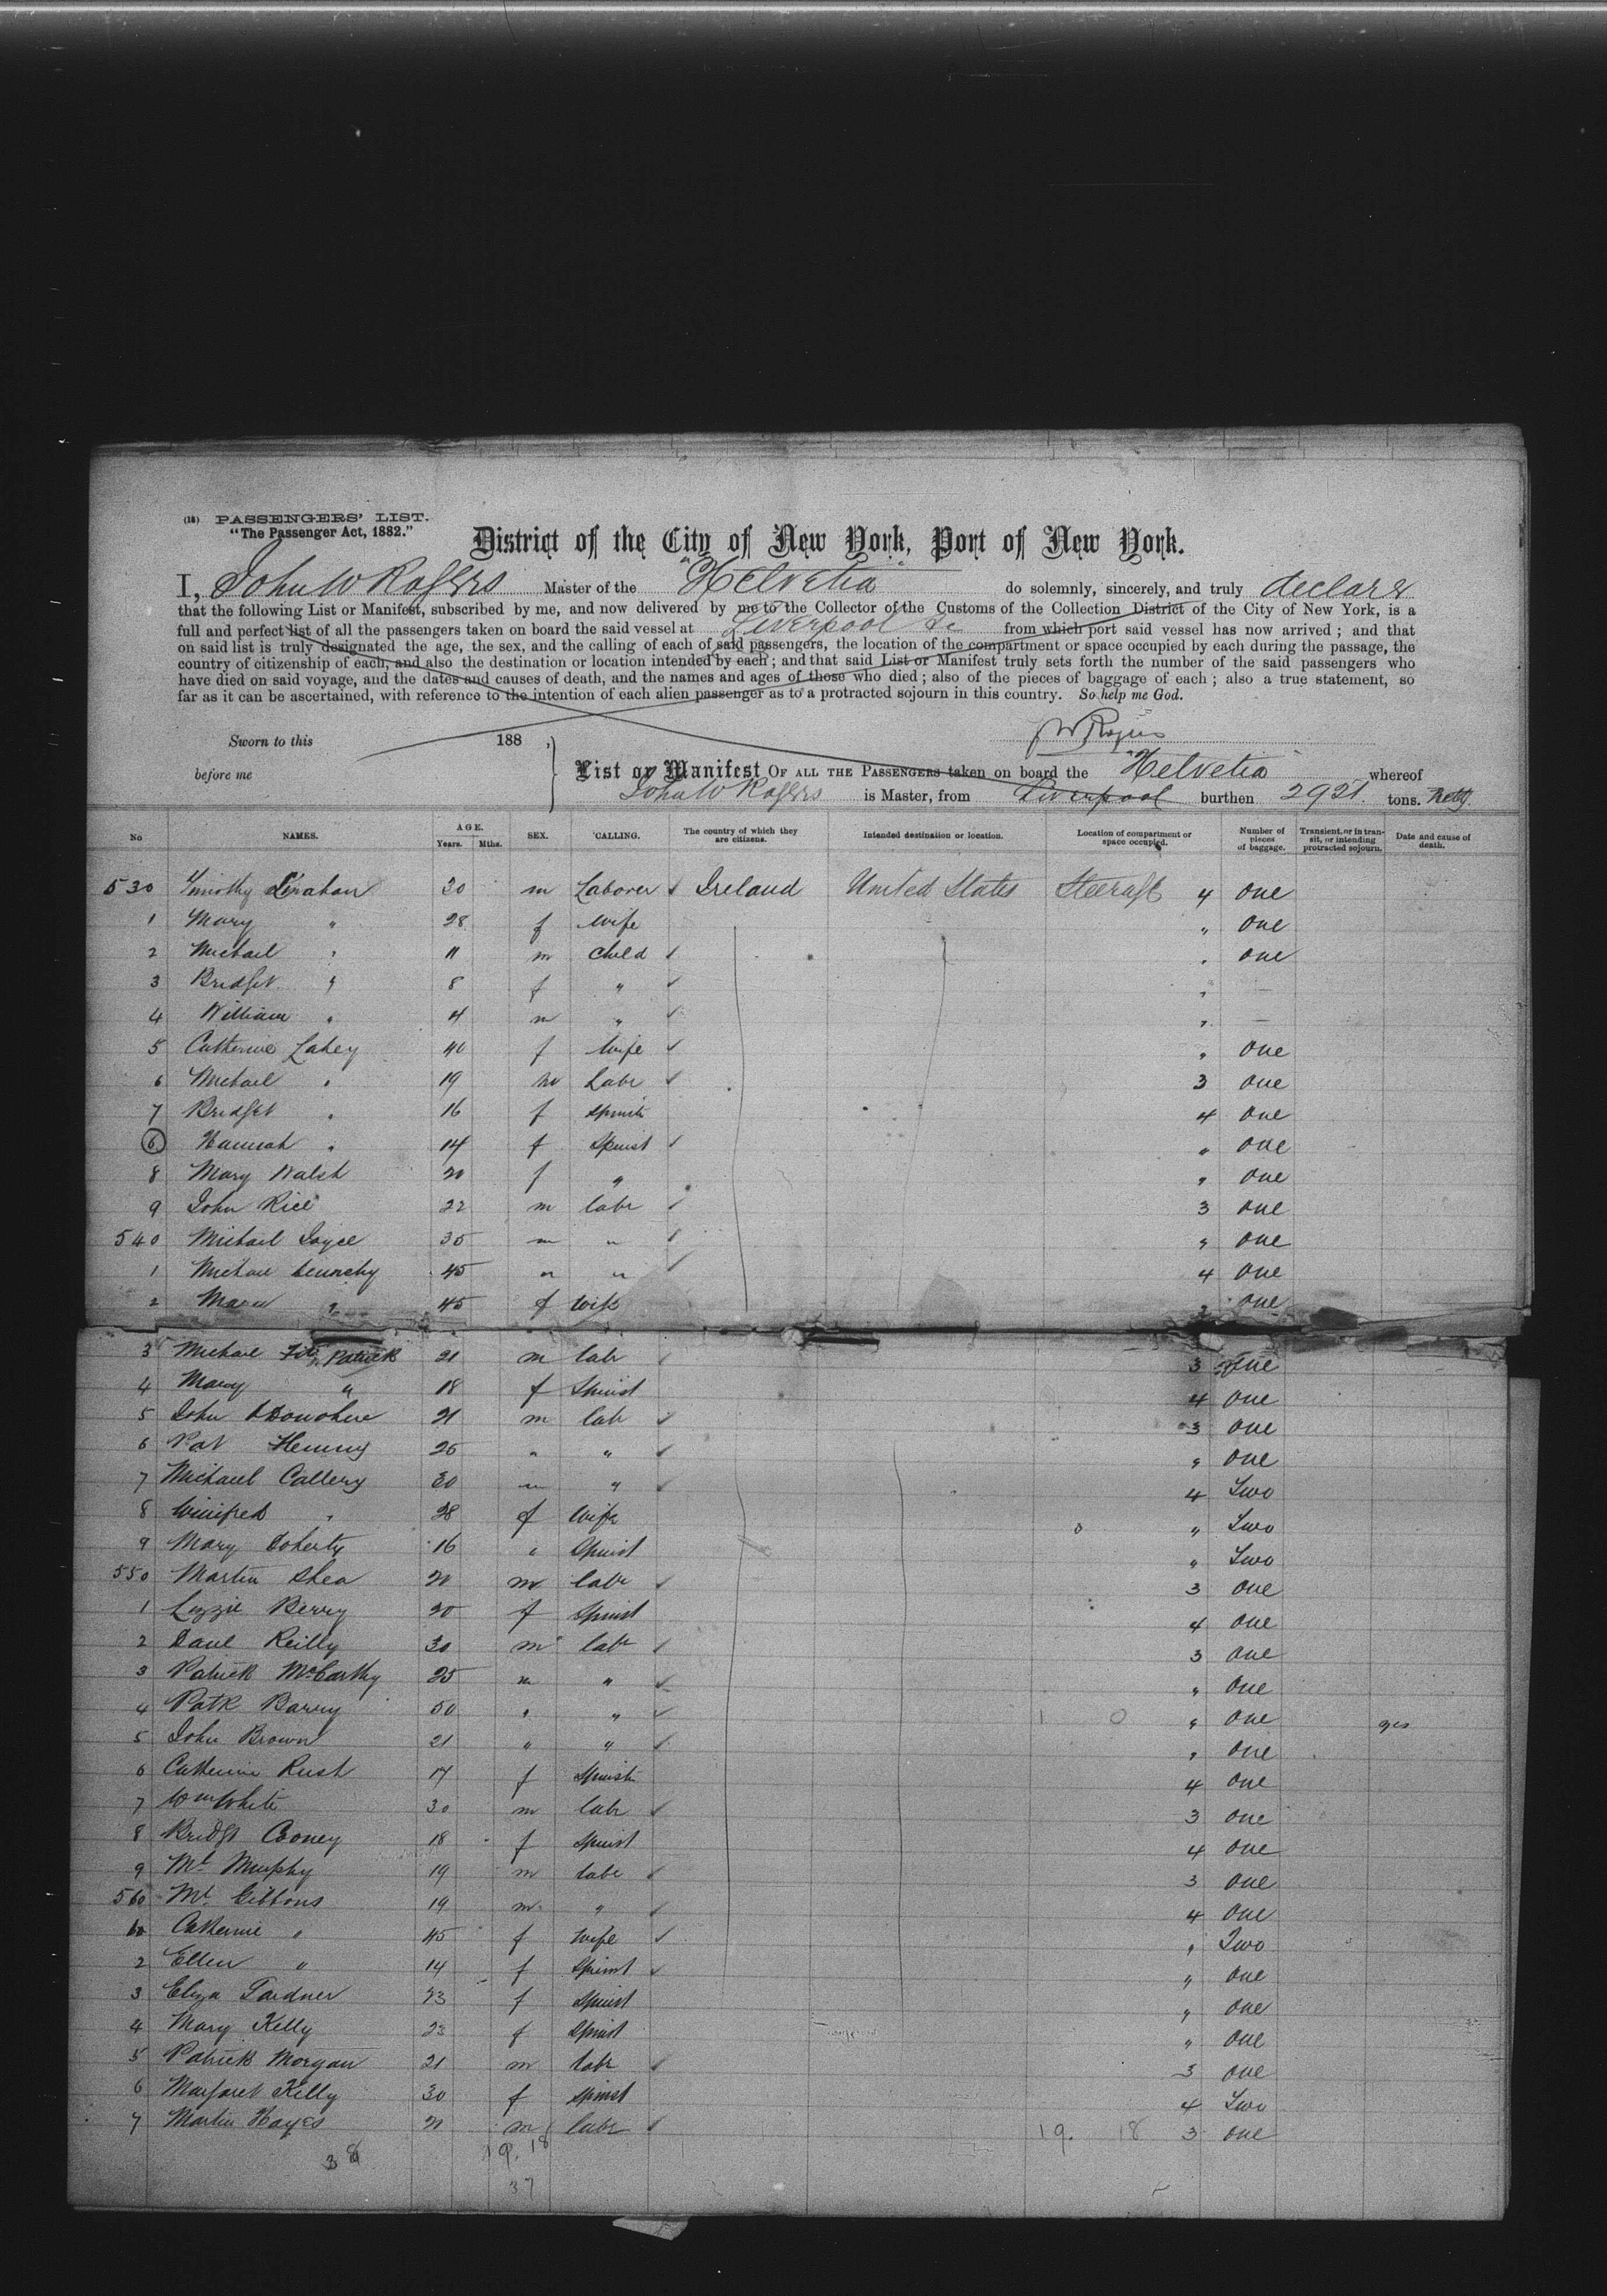 (18) PASSENGERS' LIST.
"The Passenger Act, 1882."
District of the City of New York, Port of New York.
I, John W Rogers Master of the "Helvetia" do solemnly, sincerely, and truly declare
that the following List or Manifest, subscribed by me, and now delivered by me to the Collector of the Customs of the Collection District of the City of New York, is a
full and perfect list of all the passengers taken on board the said vessel at Liverpool &c from which port said vessel has now arrived; and that
on said list is truly designated the age, the sex, and the calling of each of said passengers, the location of the compartment or space occupied by each during the passage, the
country of citizenship of each, and also the destination or location intended by each; and that said List or Manifest truly sets forth the number of the said passengers who
have died on said voyage, and the dates and causes of death, and the names and ages of those who died; also of the pieces of baggage of each; also a true statement, so
far as it can be ascertained, with reference to the intention of each alien passenger as to a protracted sojourn in this country. So help me God.
Sworn to this 188 , J W Rogers
before me
List or Manifest OF ALL THE PASSENGERS taken on board the "Helvetia" whereof
John W Rogers is Master, from Liverpool burthen 2921. tons. Nett
No NAMES. AGE. Years. Mths. SEX. CALLING. The country of which they are citizens. Intended destination or location. Location of compartment or space occupied. Number of pieces of baggage. Transient, or in transit, or intending protracted sojourn. Date and cause of death.
530 Timothy Linahan 30 m Laborer Ireland United States Steerage 4 One
1 Mary " 28 f Wife " One
2 Michael " 11 m Child " One
3 Bridget " 8 f " "
4 William " 4 m " "
5 Catherine Lahey 40 f Wife " One
6 Michael " 19 m Labr 3 One
7 Bridget " 16 f Spinst 4 One
6 Hannah " 14 f Spinst " One
8 Mary Walsh 20 f " " One
9 John Rice 22 m labr 3 One
540 Michael Joyce 35 m " " One
1 Michael 45 " " 4 One
2 Mary " 45 f Wife " One
3 Michael Fitz Patrick 21 m labr 3 One
4 Mary " 18 f Spinst 4 One
5 John O'Donohue 21 m labr 3 One
6 Pat Fleming 26 " " " One
7 Michael Callery 30 " " 4 Two
8 Winifred " 28 f Wife " Two
9 Mary Doherty 16 " Spinst " Two
550 Martin Shea 20 m labr 3 One
1 Lizzie Berry 20 f Spinst 4 One
2 Danl Reilly 30 m labr 3 One
3 Patrick McCarthy 25 " " " One
4 Patk Barry 50 " " 1 0 " One yes
5 John Brown 21 " " " One
6 Catherine Rush 17 f Spinst 4 One
7 Wm White 30 m labr 3 One
8 Bridgt Cooney 18 f Spinst 4 One
9 Ml Murphy 19 m labr 3 One
560 Ml Gibbons 19 m " 4 One
Catherine " 45 f Wife " Two
2 Ellen " 14 f Spinst " One
3 Eliza Gardner 23 f Spinst " One
4 Mary Kelly 23 f Spinst " One
5 Patrick Morgan 21 m labr 3 One
6 Margaret Kelly 30 f Spinst 4 Two
7 Martin Hayes 21 m labr 19. 18 3 One
38 19. 18
37